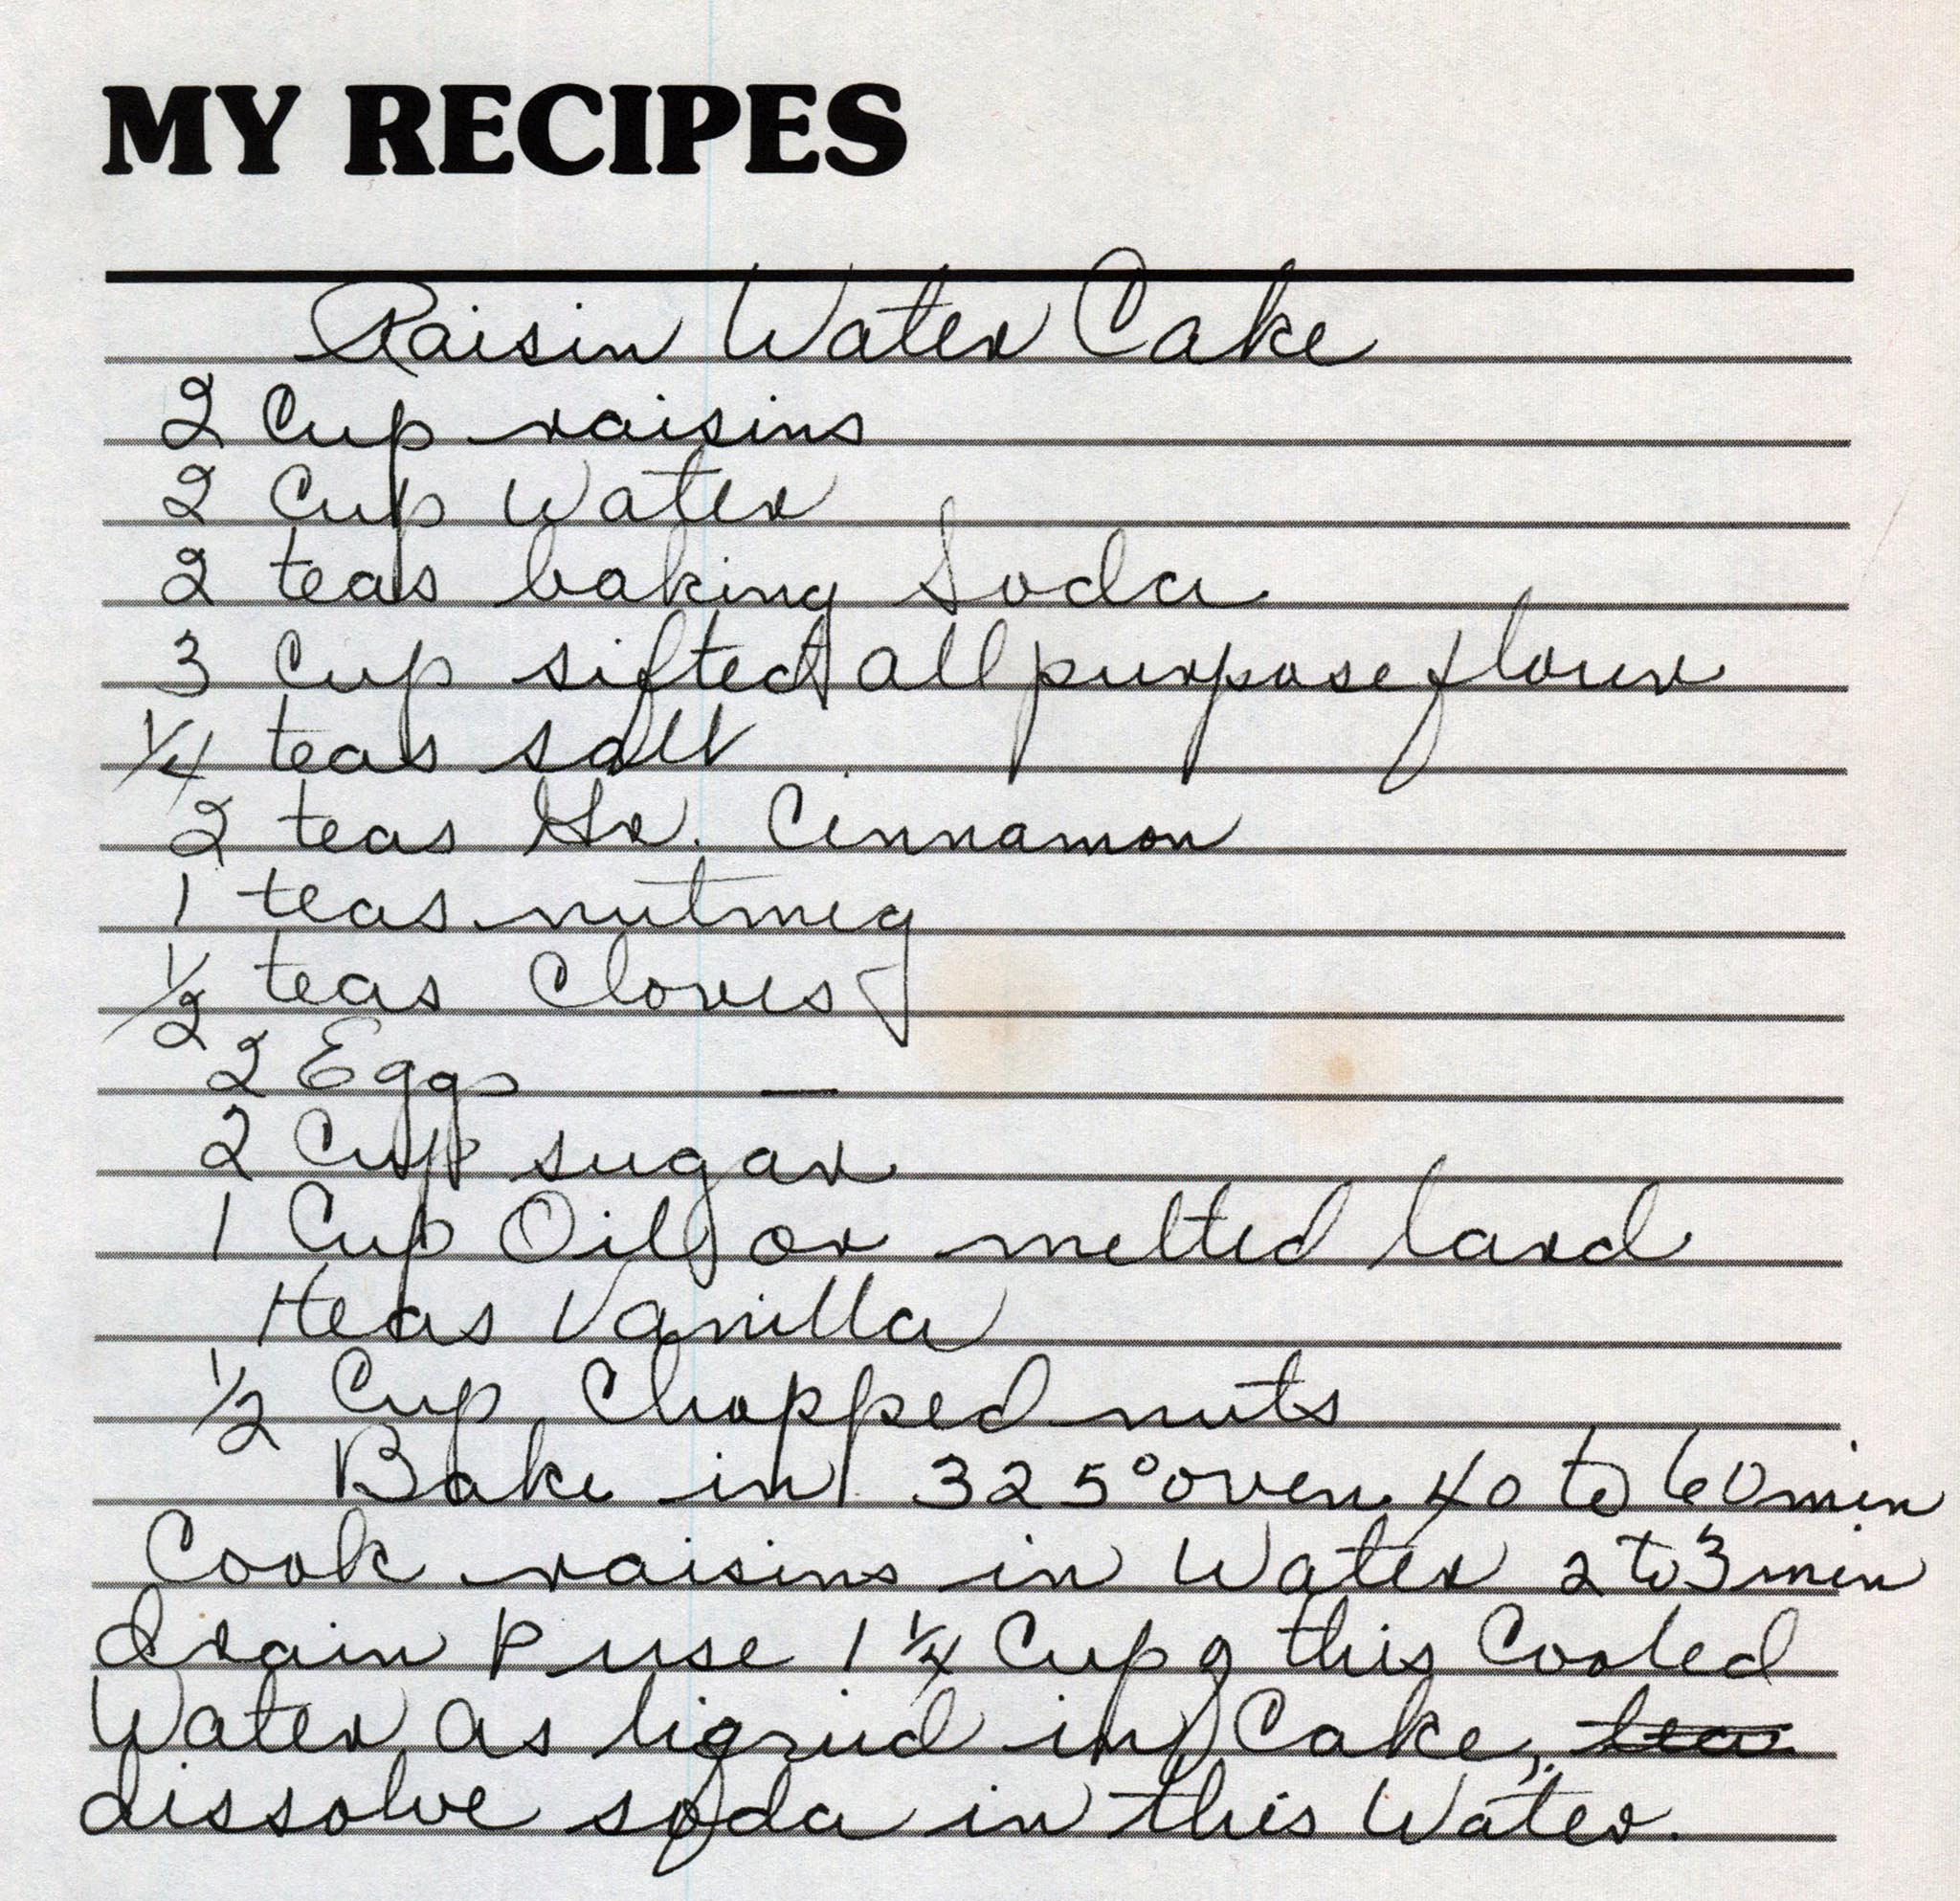 MY RECIPES
Raisin Water Cake
2 Cup raisins
2 Cup Water
2 teas baking Soda
3 Cup sifted all purpose flour
1/4 teas salt
2 teas Gr. Cinnamon
1 teas nutmeg
1/2 teas Cloves
2 Eggs —
2 Cup sugar
1 Cup Oil or melted lard
1 teas Vanilla
1/2 Cup Chopped nuts
Bake in 325° oven 40 to 60 min
Cook raisins in Water 2 to 3 min
drain & use 1 1/4 Cup of this Cooled
Water as liquid in Cake,
dissolve soda in this Water.